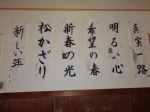 真実一路
明るい心
希望の春
新春の光
松かざり
新しい年